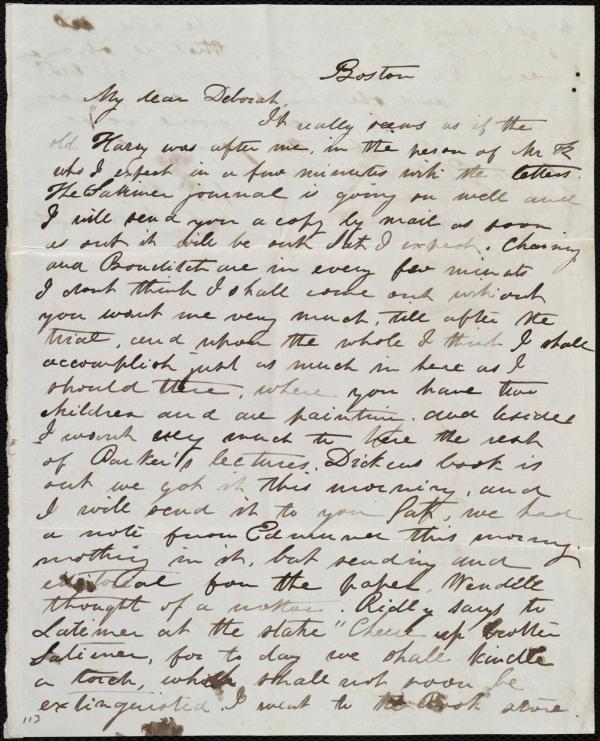 Boston
My dear Deborah,
It really seems as if the
old Harry was after me, in the person of Mr
who I expect in a few minutes with the letters.
The Latimer journal is going on well and
I will send you a copy by mail as soon
as out it will be out I expect. Channing
and Bowditch are in every few minutes
I dont think I shall come out without
you want me very much, till after the
trial, and upon the whole I think I shall
accomplish just as much in here as I
should there, where you have two
children and are painting. and besides
I want very much to hear the rest
of Parker's lectures. Dickens book is
out we got it this morning, and
I will send it to you Sat, we had
a note from Edmund this morning.
nothing in it, but sending and
editorial for the paper. Wendell
thought of a motto. Ridley says to
Latimer at the stake "Cheer up brother
Latimer, for to day we shall kindle
a torch, which shall not soon be
extinguished. I went to the Book store.
113